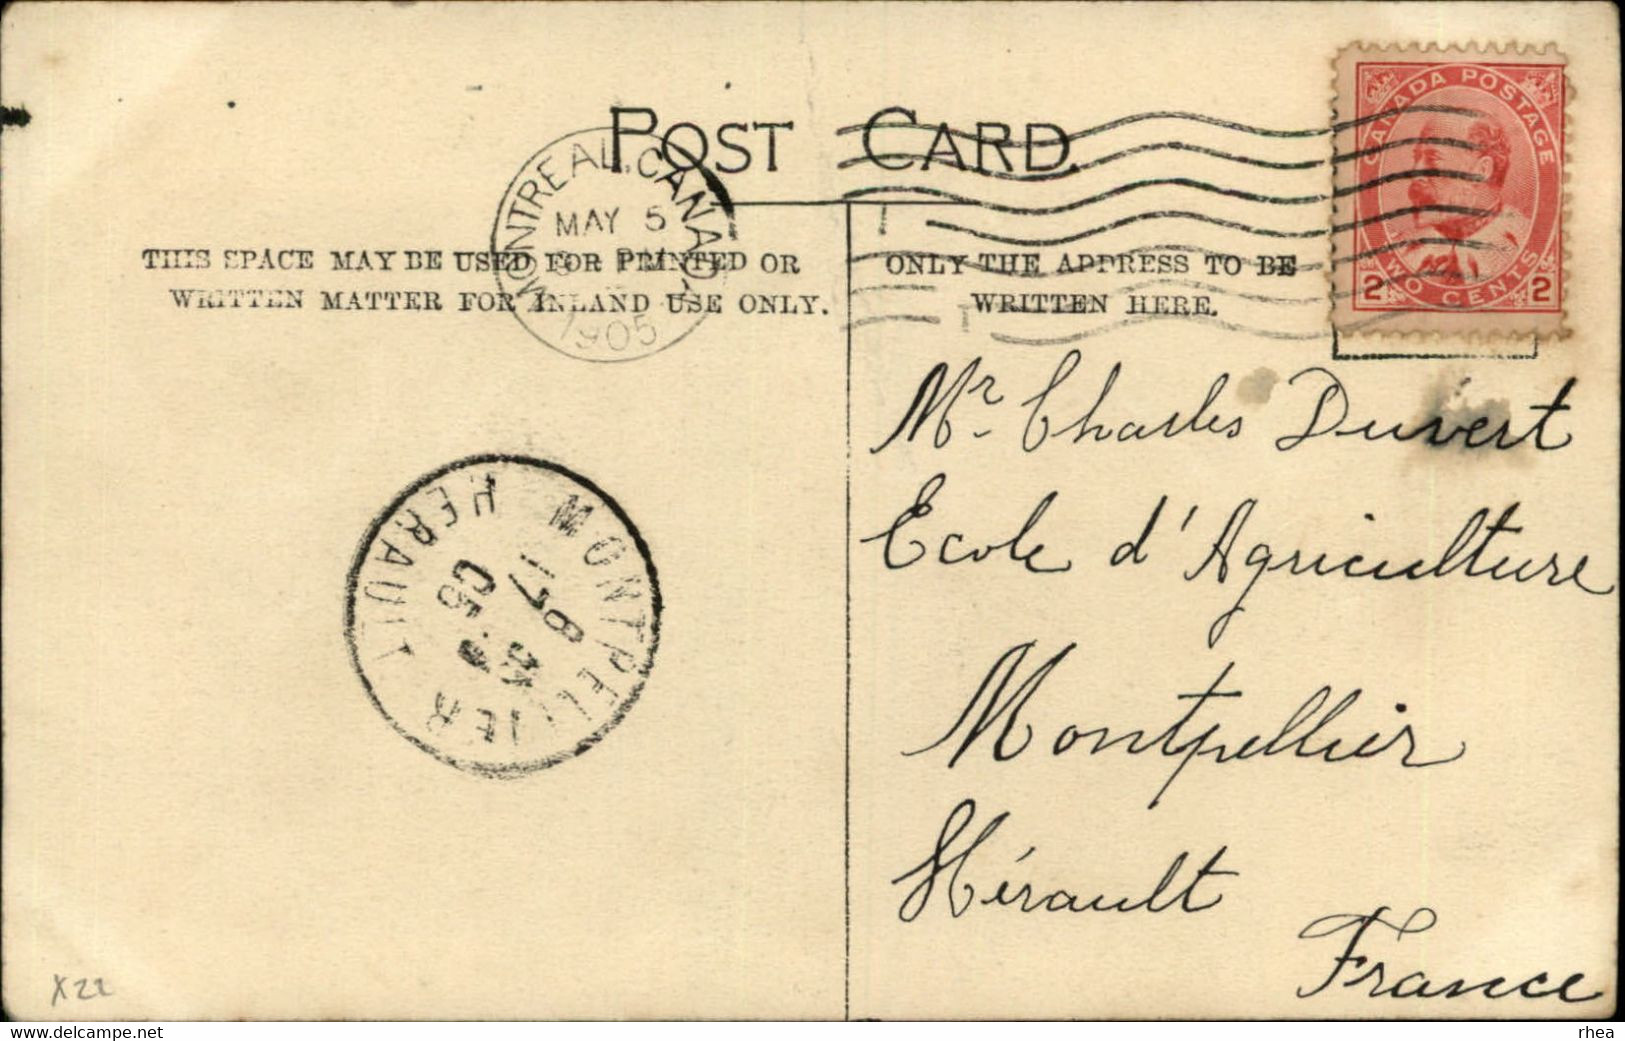 POST CARD.
CANADA POSTAGE
2 TWO CENTS 2
MONTREAL, CANADA
MAY 5
PM
1905
THIS SPACE MAY BE USED FOR PRINTED OR
WRITTEN MATTER FOR INLAND USE ONLY.
ONLY THE ADDRESS TO BE
WRITTEN HERE.
Mr. Charles Duvert
Ecole d'Agriculture
Montpellier
Hérault
France
MONTPELLIER
HERAULT
05
X22
www.delcampe.net
rhea